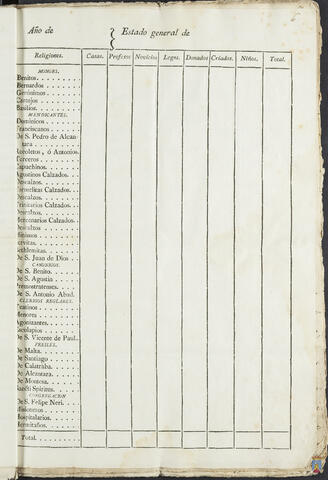 Año de
Estado general de
Religiones. Casas. Profesos Novicios Legos. Donados Criados. Niños. Total.
MONGES.
Benitos
Bernardos
Gerónimos
Cartujos
Basilios.
MENDICANTES.
Dominicos
Franciscanos
De S. Pedro de Alcan-
tara
Recoletos, ó Antonios.
Terceros
Capuchinos
Agustinos Calzados.
Descalzos
Carmelitas Calzados.
Descalzos
Trinitarios Calzados.
Descalzos
Mercenarios Calzados.
Descalzos
Mínimos
Servitas.
Bethlemitas.
De S. Juan de Dios
CANONIGOS.
De S. Benito.
De S. Agustin
Premostratenses.
De S. Antonio Abad.
CLERIGOS REGLARES.
Teatinos
Menores
Agonizantes.
Escolapios
De S. Vicente de Paul.
FREILES.
De Malta.
De Santiago
De Calatraba.
De Alcantara.
De Montesa.
Sancti Spiritus.
CONGREGACION
De S. Felipe Neri.
Misioneros
Hospitalarios.
Hermitaños.
Total.